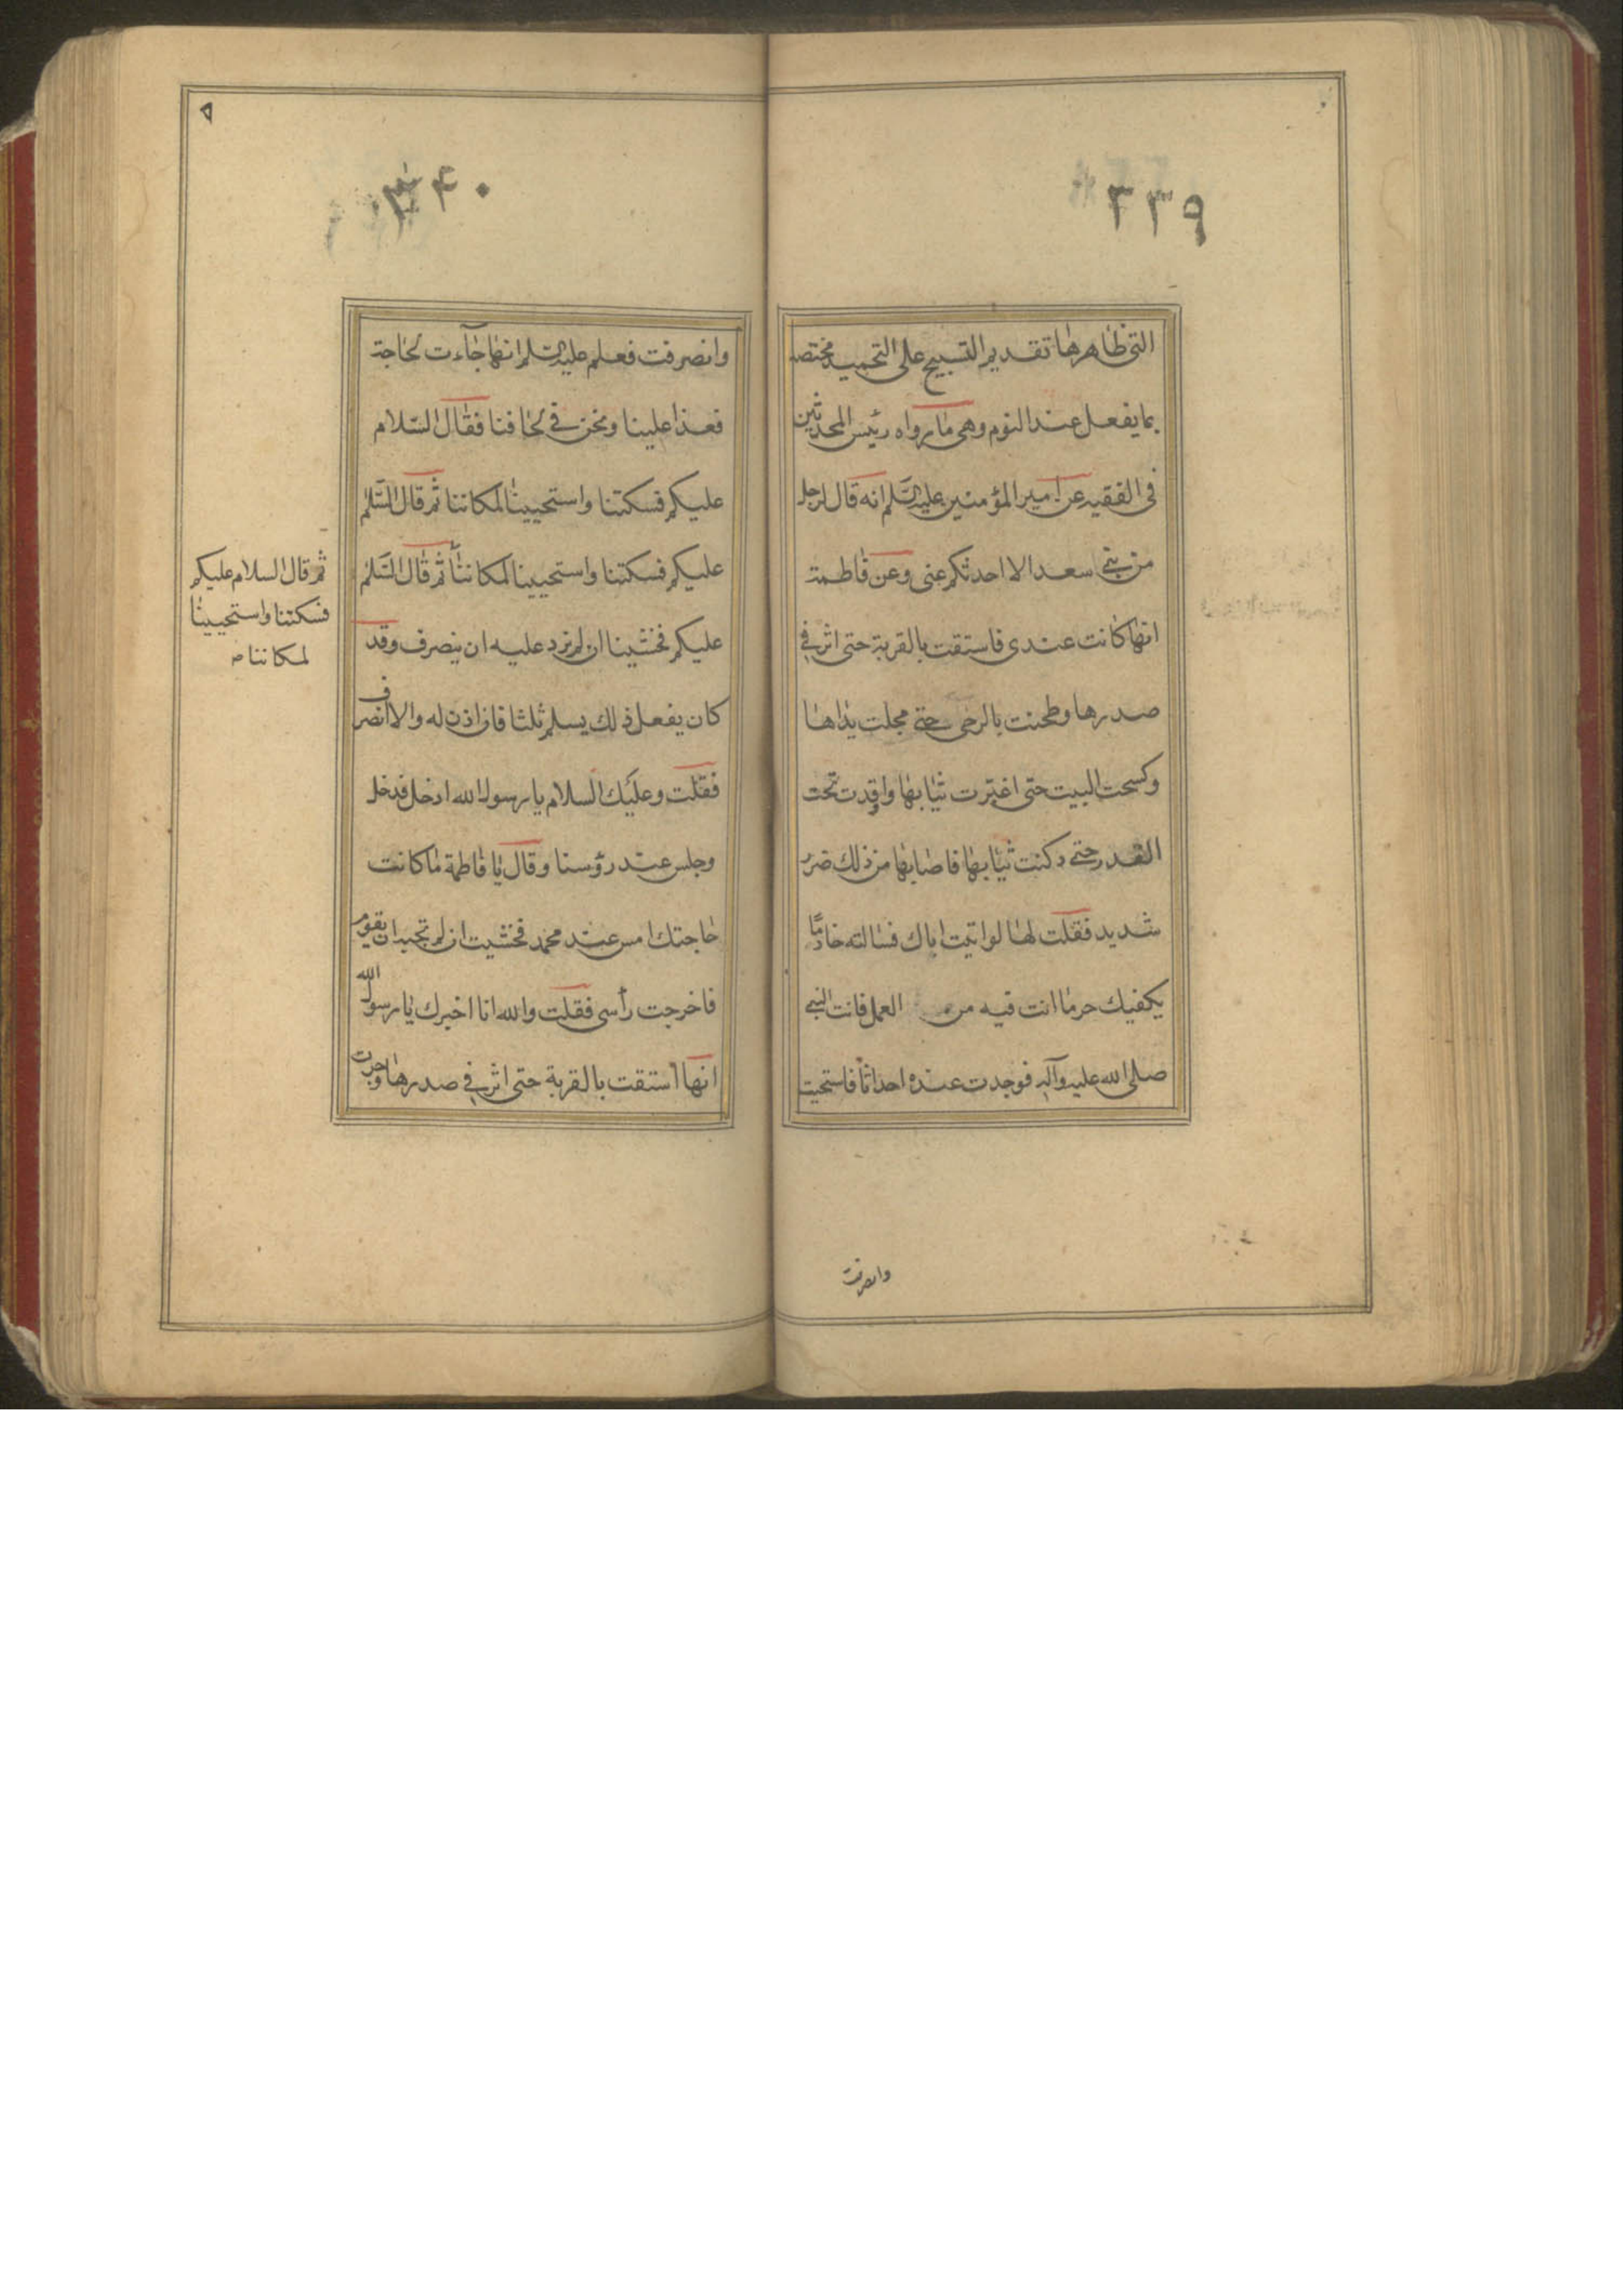 ٣٣٩
التى ظاهرها تقديم التسبيح على التحميد مختصة
بما يفعل عند النوم وهى ما رواه رئيس المحدثين
فى الفقيه عن امير المؤمنين عليه السلم انه قال لرجل
من بنى سعد الا احدثكم عنى وعن فاطمة
انها كانت عندى فاستقت بالقربة حتى اثر فى
صدرها وطحنت بالرحى حتى مجلت يداها
وكسحت البيت حتى اغبرت ثيابها واوقدت تحت
القدر حتى دكنت ثيابها فاصابها من ذلك ضر
شديد فقلت لها لو اتيت اباك فسالته خادمًا
يكفيك حر ما انت فيه من العمل فاتت النبى
صلى الله عليه وآله فوجدت عنده احداثا فاستحيت
وانصرفت
٣۴٠
وانصرفت فعلم عليه السلم انها جاءت لحاجة
فغدا علينا ونحن فى لحافنا فقال السلام
عليكم فسكتنا واستحيينا لمكاننا ثم قال السلم
عليكم فسكتنا واستحيينا لمكاننا ثم قال السلم
عليكم فخشينا ان لم نرد عليه ان ينصرف وقد
كان يفعل ذلك يسلم ثلثا فان اذن له والا انصرف
فقلت وعليك السلام يا رسول الله ادخل فدخل
وجلس عند رؤسنا وقال يا فاطمة ما كانت
حاجتك امس عند محمد فخشيت ان لم تجبه ان يقوم
فاخرجت رأسى فقلت والله انا اخبرك يا رسول الله
انها استقت بالقربة حتى اثر فى صدرها وجرت
ثم قال السلام عليكم
فسكتنا واستحيينا
لمكاننا